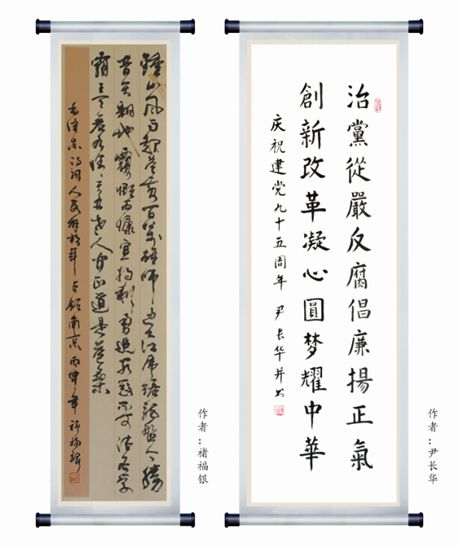 鍾山风雨起苍黄百万雄师过大江虎踞龙盘今勝
昔天翻地覆慨而慷宜将剩勇追穷寇不可沽名学
霸王天若有情天亦老人间正道是苍桑
毛泽东诗词人民解放军占领南京 丙申年 褚福银
作者：褚福银
治黨從嚴反腐倡廉揚正氣
創新改革凝心圓梦耀中華
庆祝建党九十五周年 尹长华并书
作者：尹长华